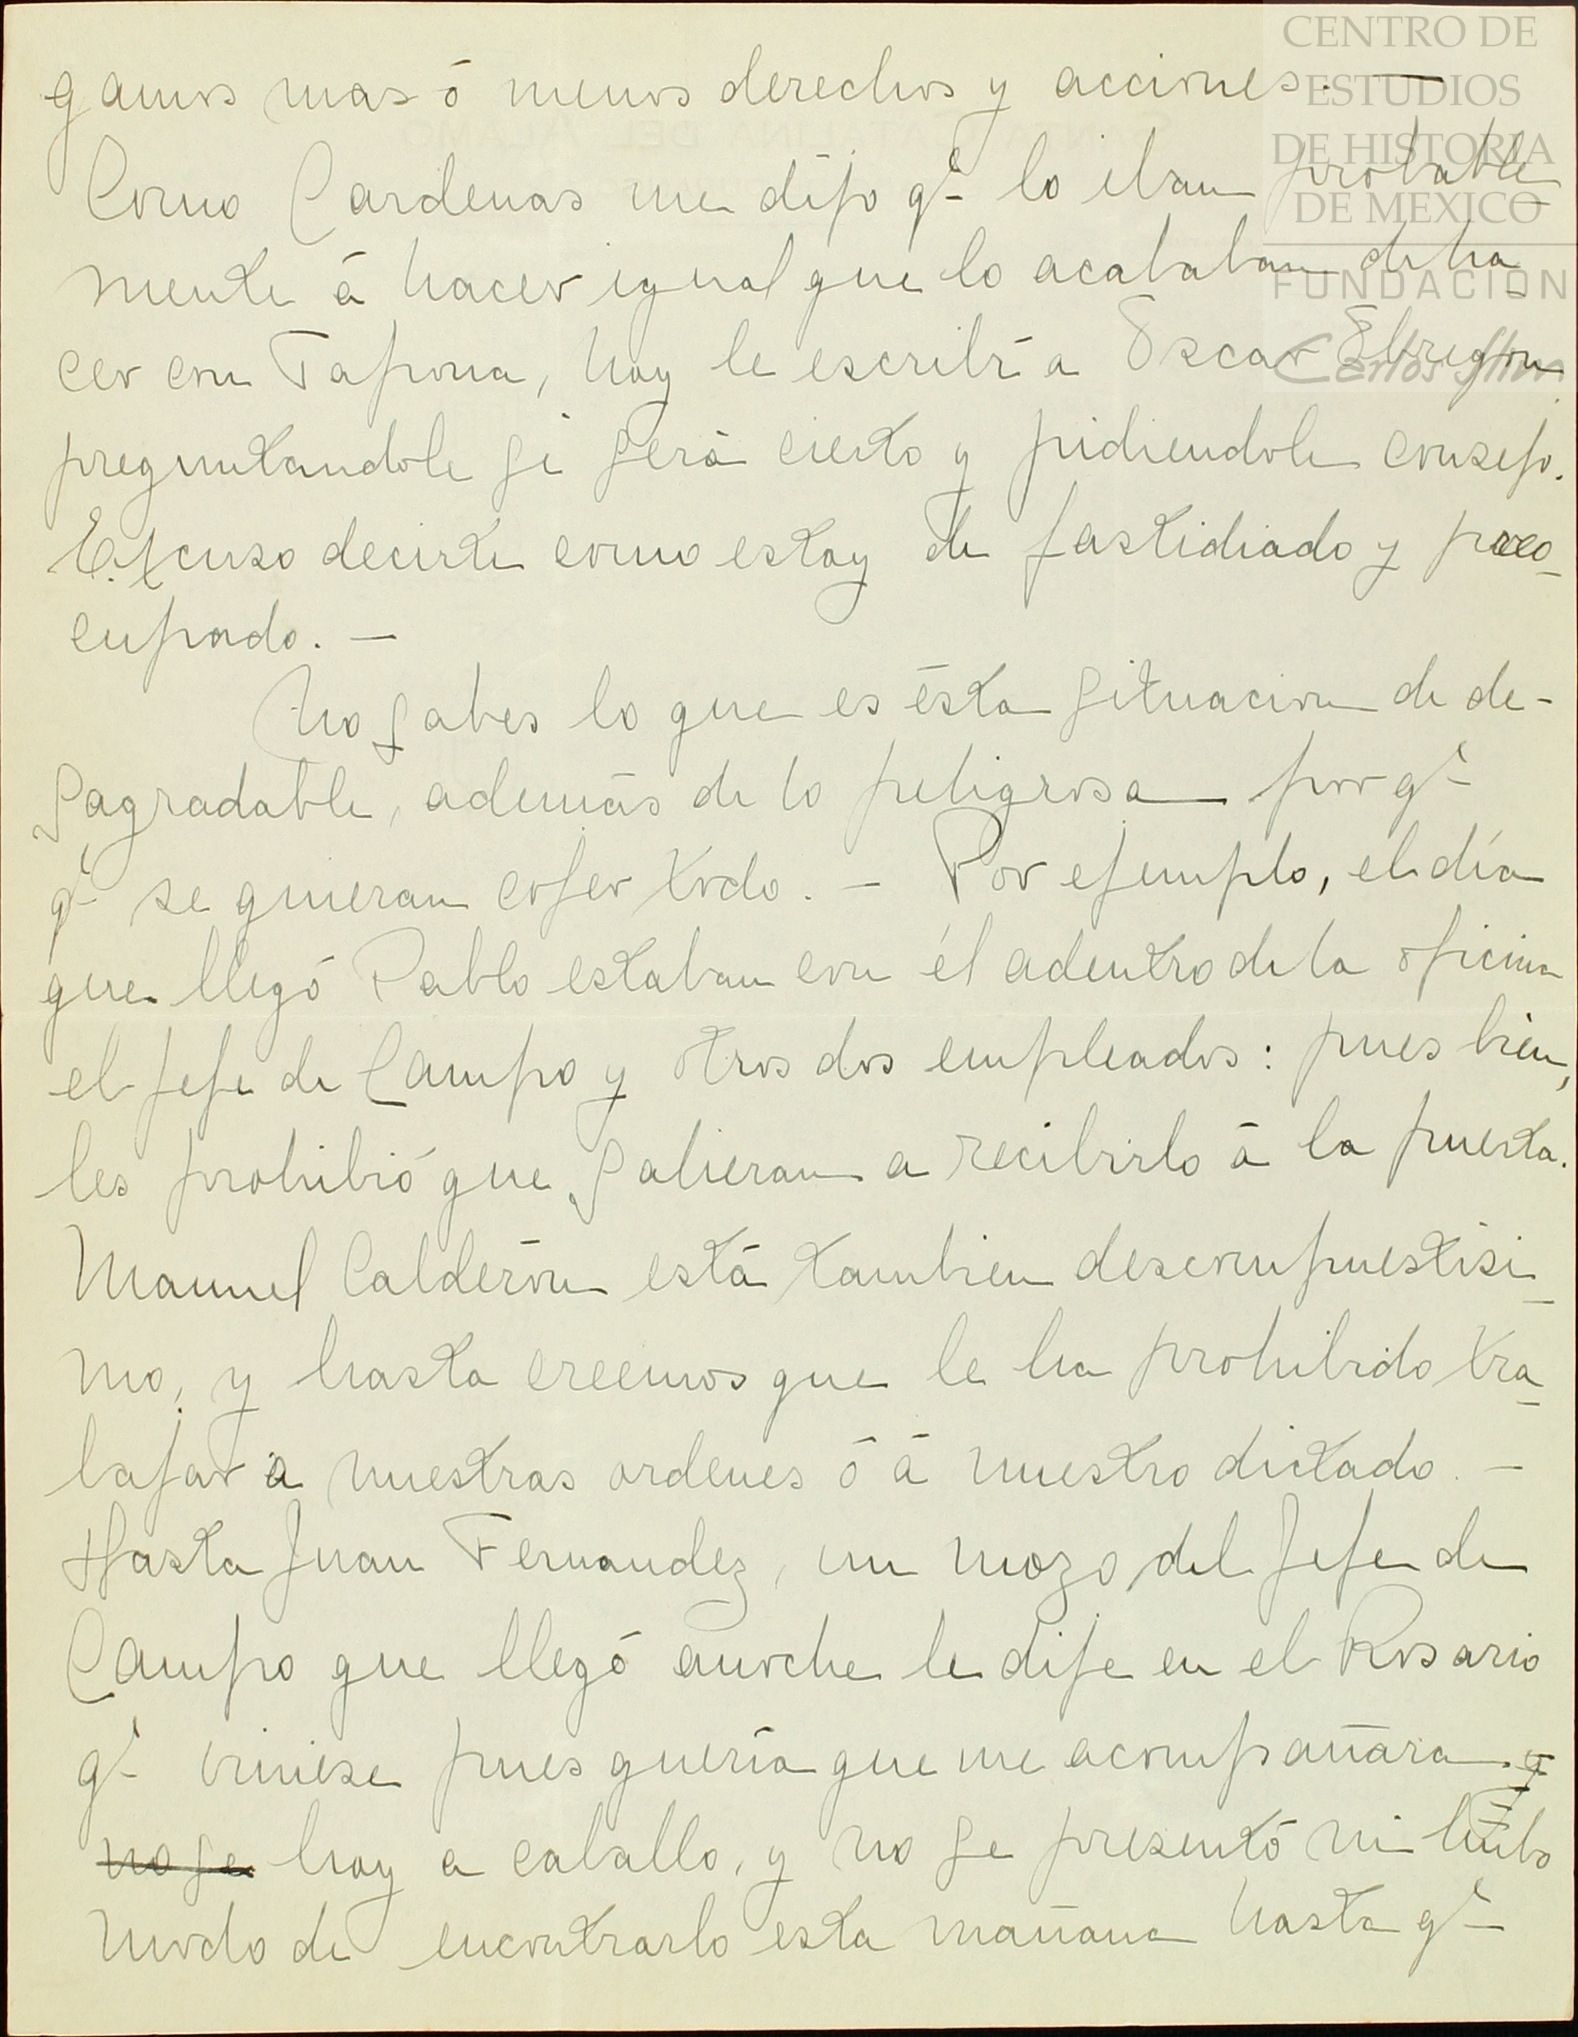 CENTRO DE
ESTUDIOS
DE HISTORIA
DE MEXICO
FUNDACIÓN
Carlos Slim
gamos mas ó menos derechos y acciones. —
Como Cardenas me dijo qe lo iban probable-
mente á hacer igual que lo acababan de ha-
cer con Tapona, hoy le escribí a Oscar Obregon
preguntandole si será cierto y pidiendole consejo.
Escuso decirte como estoy de fastidiado y preo-
cupado. —
No sabes lo que es ésta situacion de de-
sagradable, además de lo peligrosa por qe
qe se quieran cojer todo. — Por ejemplo, el día
que llegó Pablo estaban con él adentro de la oficina
el jefe de Campo y otros dos empleados: pues bien,
les prohibió que salieran a recibirlo á la puerta.
Manuel Calderón está tambien descompuestisi-
mo, y hasta creemos que le ha prohibido tra-
bajar a nuestras ordenes ó á nuestro dictado. —
Hasta Juan Fernandez, un mozo del jefe de
Campo que llegó anoche le dije en el Rosario
qe viniese pues quería que me acompañara
no se hoy a caballo, y no se presentó ni hubo
modo de encontrarlo esta mañana hasta qe